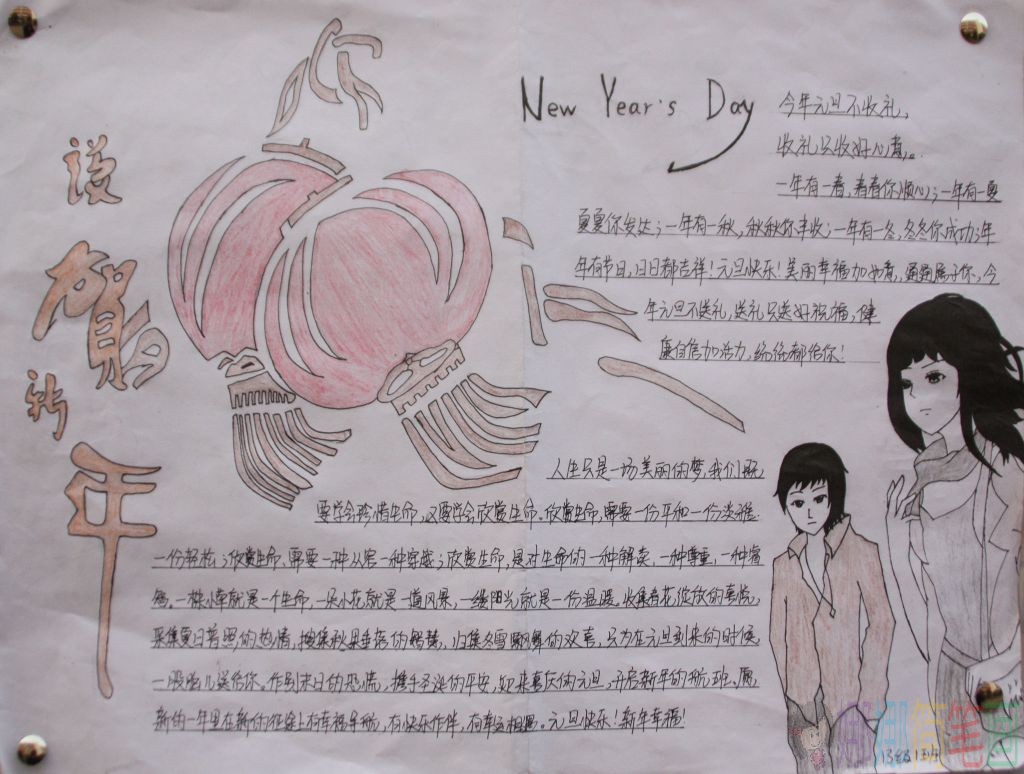 New Year's Day
说
贺
新
年
今年元旦不收礼,
收礼只收好心意。
一年有一春,春春你顺心;一年有一夏
夏夏你发生;一年有一秋,秋秋你丰收;一年有一冬,冬冬你成功;年
年有节日,日日都吉祥!元旦快乐!美丽幸福加如意,通通属于你,今
年元旦不送礼,送礼只送好祝福,健
康自信加活力,统统都给你!
人生只是一场美丽的梦,我们既
要学会珍惜生命,又要学会欣赏生命。欣赏生命,需要一份平和一份淡雅
一份轻松;欣赏生命、需要一种从容一种穿越;欣赏生命,是对生命的一种解读,一种尊重,一种
一株小草就是一个生命,一朵小花就是一道风景,一缕阳光就是一份温暖。收集春花绽放的喜悦,
采集夏日普照的热情,搜集秋果垂落的智慧,归集冬雪飘舞的欢喜,只为在元旦到来的时候
一股脑儿送给你。作别末日的恐慌,携手圣诞的平安,迎来喜庆的元旦,开启新年的航班、愿
新的一年里在新的征途上有幸福导航,有快乐作伴,有幸运相遇。元旦快乐!新年幸福!